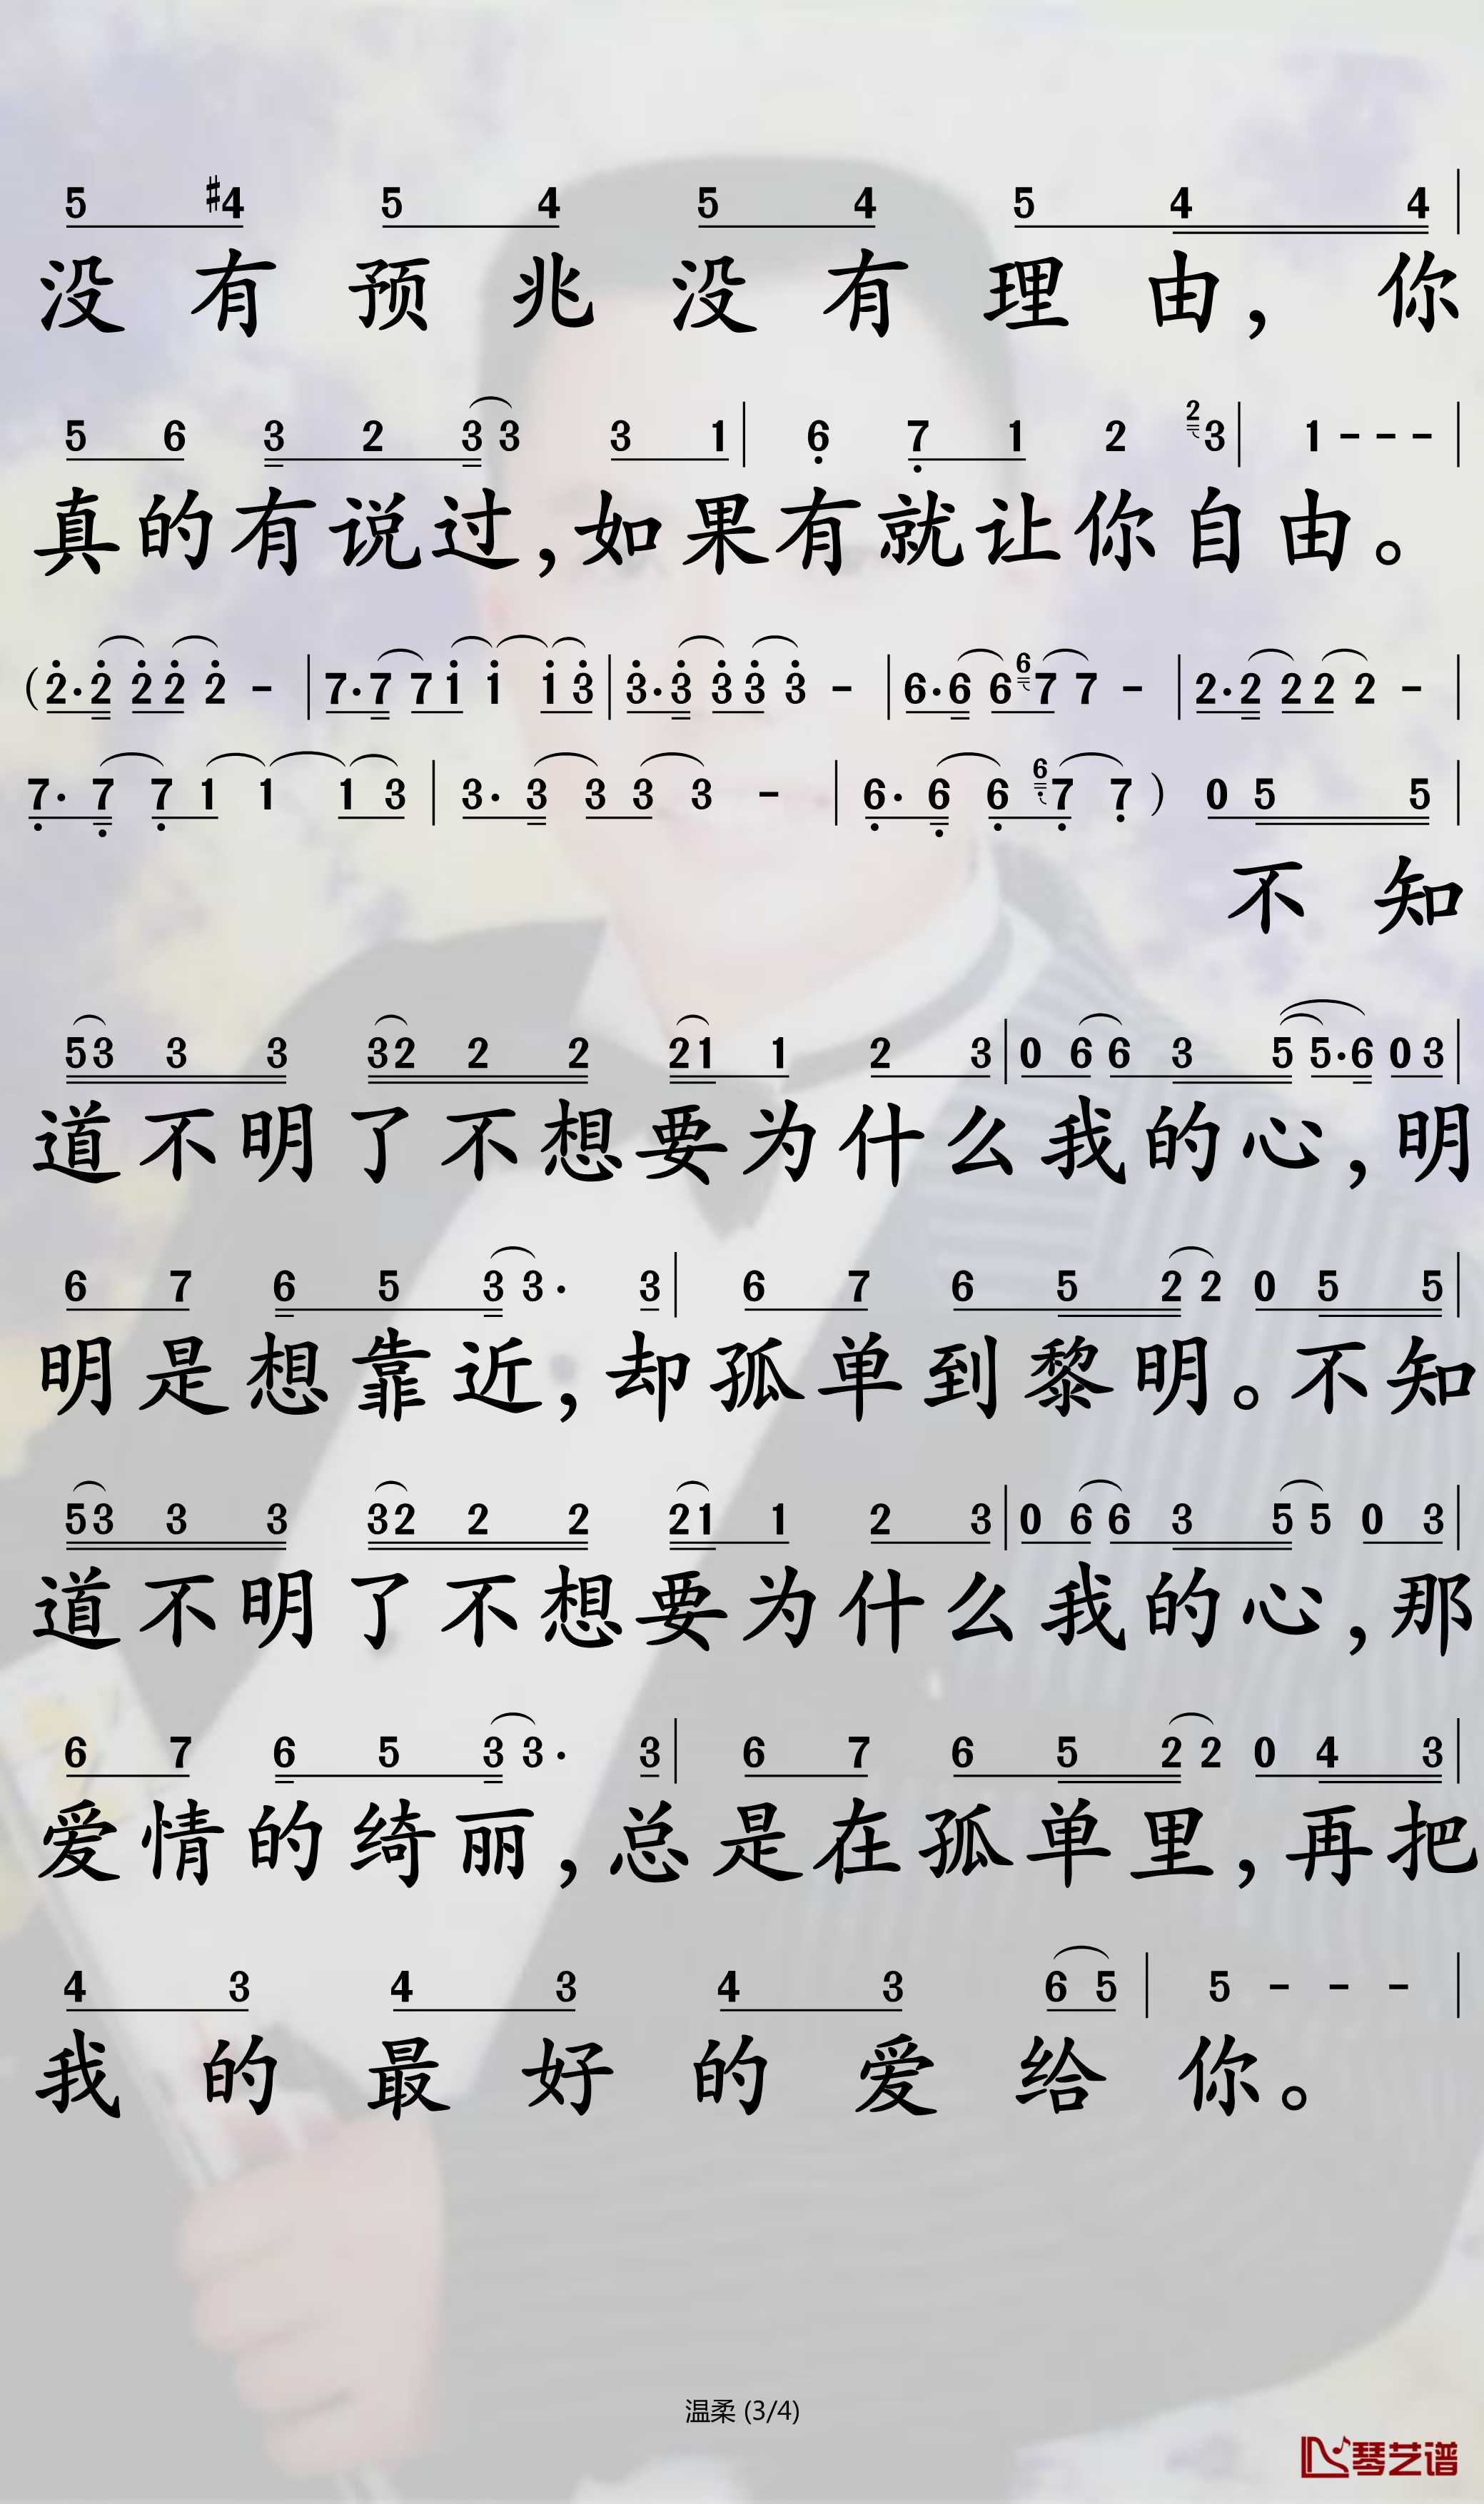 5 #4 5 4 5 4 5 4 4 |
没有预兆没有理由，你
5 6 3 2 3 3 3 1 | 6 7 1 2 2 3 | 1 - - - |
真的有说过，如果有就让你自由。
(2·2 2 2 2 - | 7·7 7 1 1 1 3 | 3·3 3 3 3 - | 6·6 6 6 7 7 - | 2·2 2 2 2 - |
7·7 7 1 1 1 3 | 3·3 3 3 3 - | 6·6 6 6 7 7) 0 5 5 |
不知
5 3 3 3 3 2 2 2 2 1 1 2 3 | 0 6 6 3 5 5·6 0 3 |
道不明了不想要为什么我的心，明
6 7 6 5 3 3· 3 | 6 7 6 5 2 2 0 5 5 |
明是想靠近，却孤单到黎明。不知
5 3 3 3 3 2 2 2 2 1 1 2 3 | 0 6 6 3 5 5 0 3 |
道不明了不想要为什么我的心，那
6 7 6 5 3 3· 3 | 6 7 6 5 2 2 0 4 3 |
爱情的绮丽，总是在孤单里，再把
4 3 4 3 4 3 6 5 | 5 - - - |
我的最好的爱给你。
温柔 (3/4)
琴艺谱